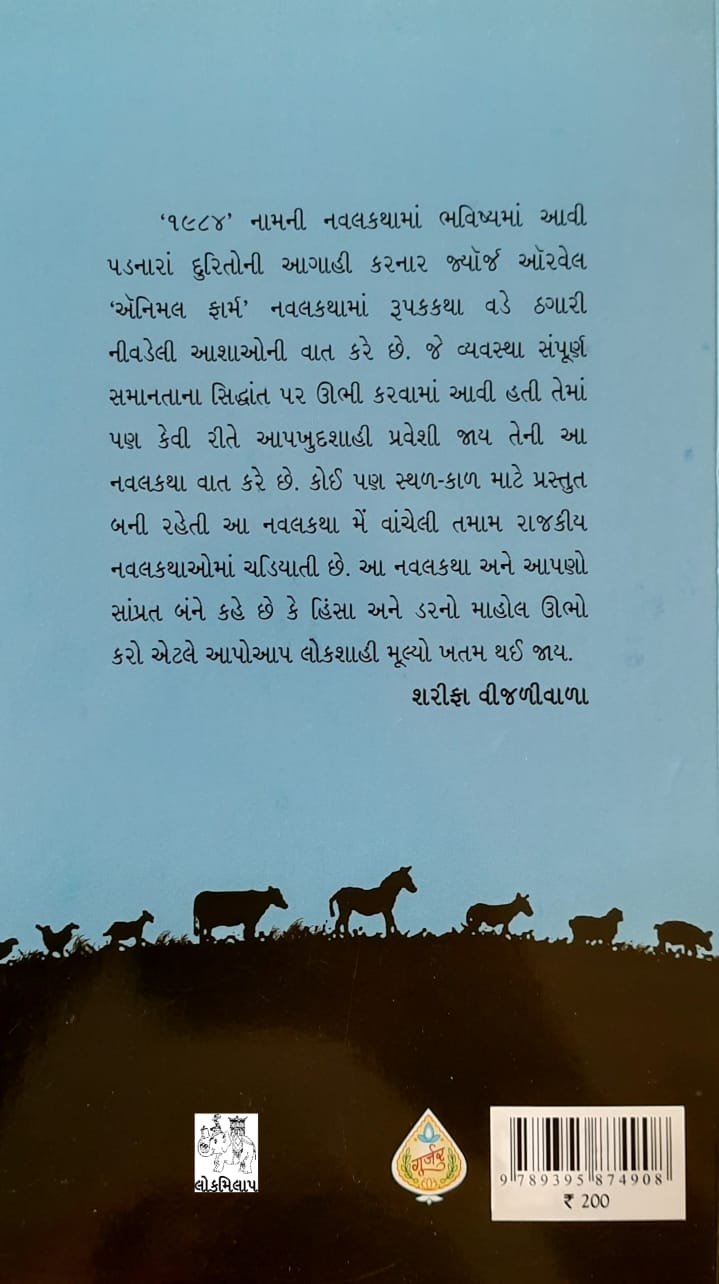 ‘૧૯૮૪’ નામની નવલકથામાં ભવિષ્યમાં આવી
પડનારાં દુરિતોની આગાહી કરનાર જ્યૉર્જ ઑરવેલ
‘ઍનિમલ ફાર્મ’ નવલકથામાં રૂપકકથા વડે ઠગારી
નીવડેલી આશાઓની વાત કરે છે. જે વ્યવસ્થા સંપૂર્ણ
સમાનતાના સિદ્ધાંત પર ઊભી કરવામાં આવી હતી તેમાં
પણ કેવી રીતે આપખુદશાહી પ્રવેશી જાય તેની આ
નવલકથા વાત કરે છે. કોઈ પણ સ્થળ-કાળ માટે પ્રસ્તુત
બની રહેતી આ નવલકથા મેં વાંચેલી તમામ રાજકીય
નવલકથાઓમાં ચડિયાતી છે. આ નવલકથા અને આપણો
સાંપ્રત બંને કહે છે કે હિંસા અને ડરનો માહોલ ઊભો
કરો એટલે આપોઆપ લોકશાહી મૂલ્યો ખતમ થઈ જાય.
શરીફા વીજળીવાળા
લોકમિલાપ
ગૂર્જર
9 789395 874908
₹ 200